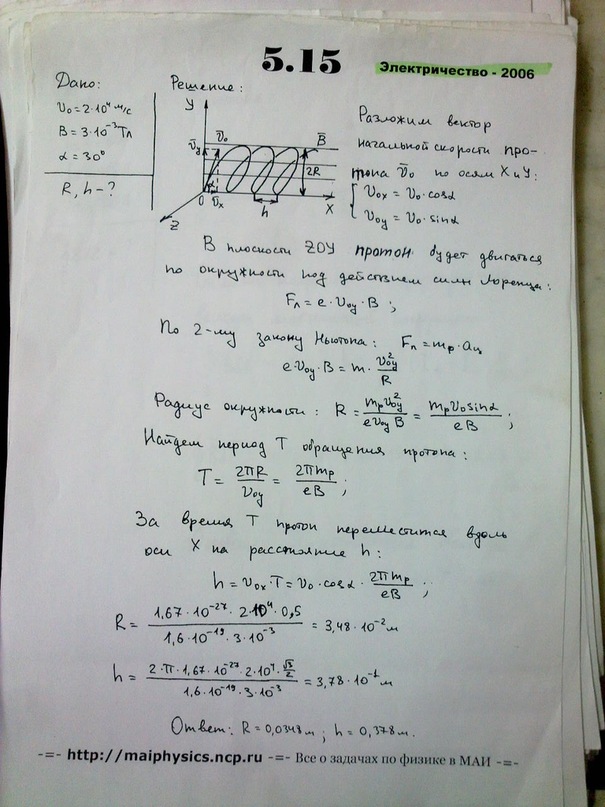 5.15
Электричество - 2006
Дано:
Решение:
V₀ = 2·10⁴ м/с
B = 3·10⁻³ Тл
α = 30°
R, h - ?
Y
V̄y
V̄₀
B̄
2R
α
0
V̄x
h
X
Z
Разложим вектор
начальной скорости про-
тона V̄₀ по осям X и Y:
V₀x = V₀·cosα
V₀y = V₀·sinα
В плоскости ZOY протон будет двигаться
по окружности под действием силы Лоренца:
Fл = e·V₀y·B ;
По 2-му закону Ньютона: Fл = mp·aц
e·V₀y·B = m·V₀y²/R
Радиус окружности: R = mpV₀y²/eV₀yB = mpV₀sinα/eB ;
Найдем период T обращения протона:
T = 2πR/V₀y = 2πmp/eB ;
За время T протон переместится вдоль
оси X на расстояние h:
h = V₀x·T = V₀·cosα·2πmp/eB ;
R = 1,67·10⁻²⁷·2·10⁴·0,5/1,6·10⁻¹⁹·3·10⁻³ = 3,48·10⁻² м
h = 2·π·1,67·10⁻²⁷·2·10⁴·√3/2/1,6·10⁻¹⁹·3·10⁻³ = 3,78·10⁻¹ м
Ответ: R = 0,0348 м ; h = 0,378 м.
-=- http://maiphysics.ncp.ru -=- Все о задачах по физике в МАИ -=-